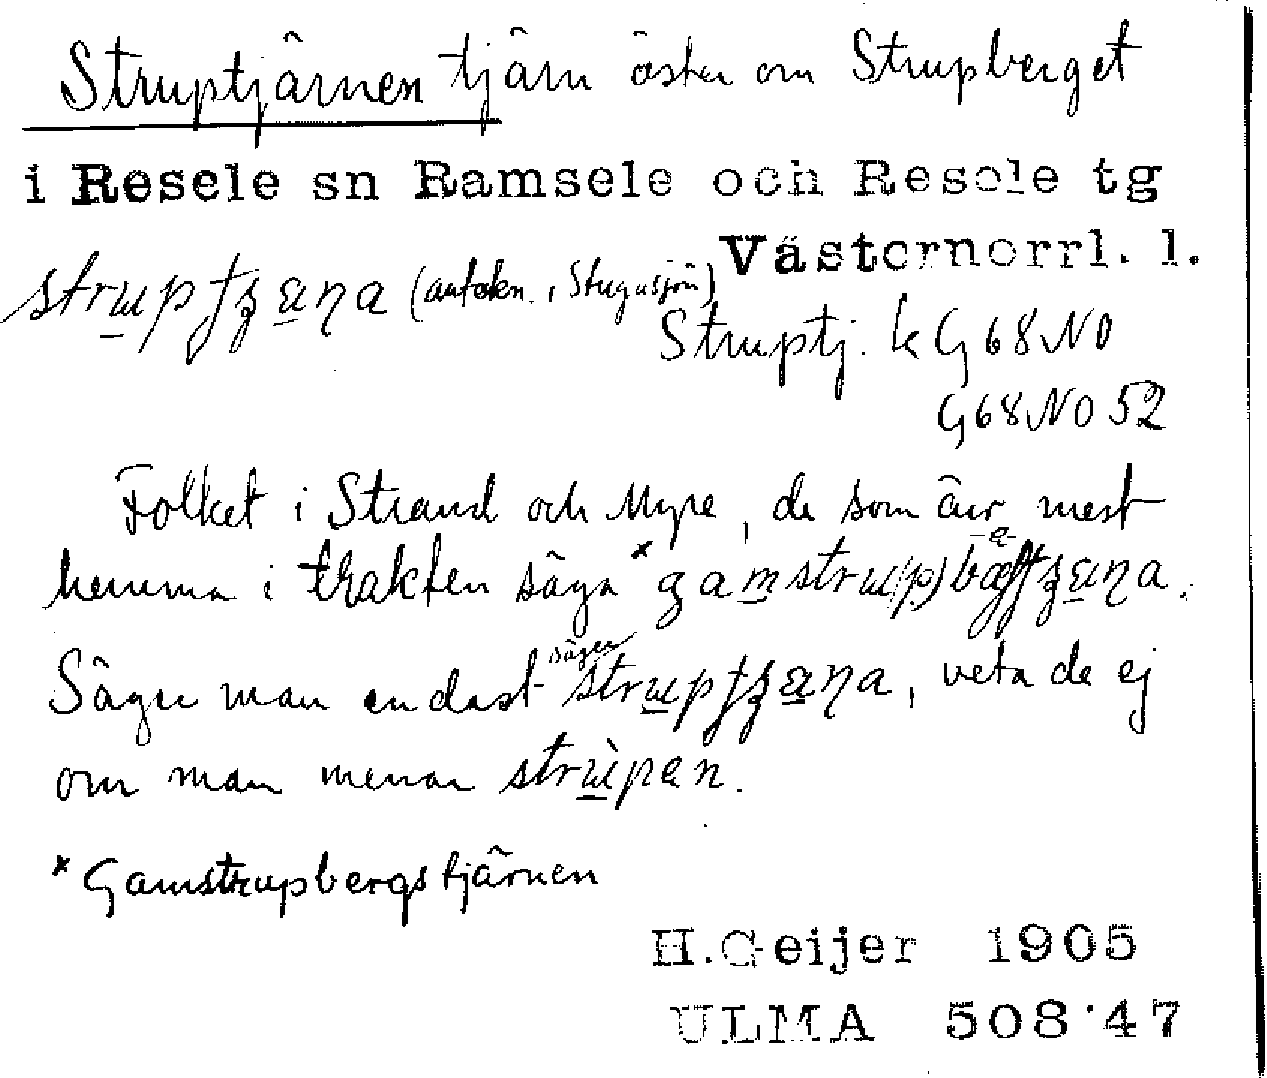 Struptjärnen tjärn öster om Strupberget
i Resele sn Ramsele och Resele tg
Västernorrl. l.
(anteckn. i Stugusjön)
Struptj. k G68NO
G68NO52
Folket i Strand och Myre, de som är mest
hemma i trakten säga *
Säger man endast säger , veta de ej
om man menar strùpan.
* Gamstrupbergstjärnen
H.Geijer 1905
ULMA 508:47